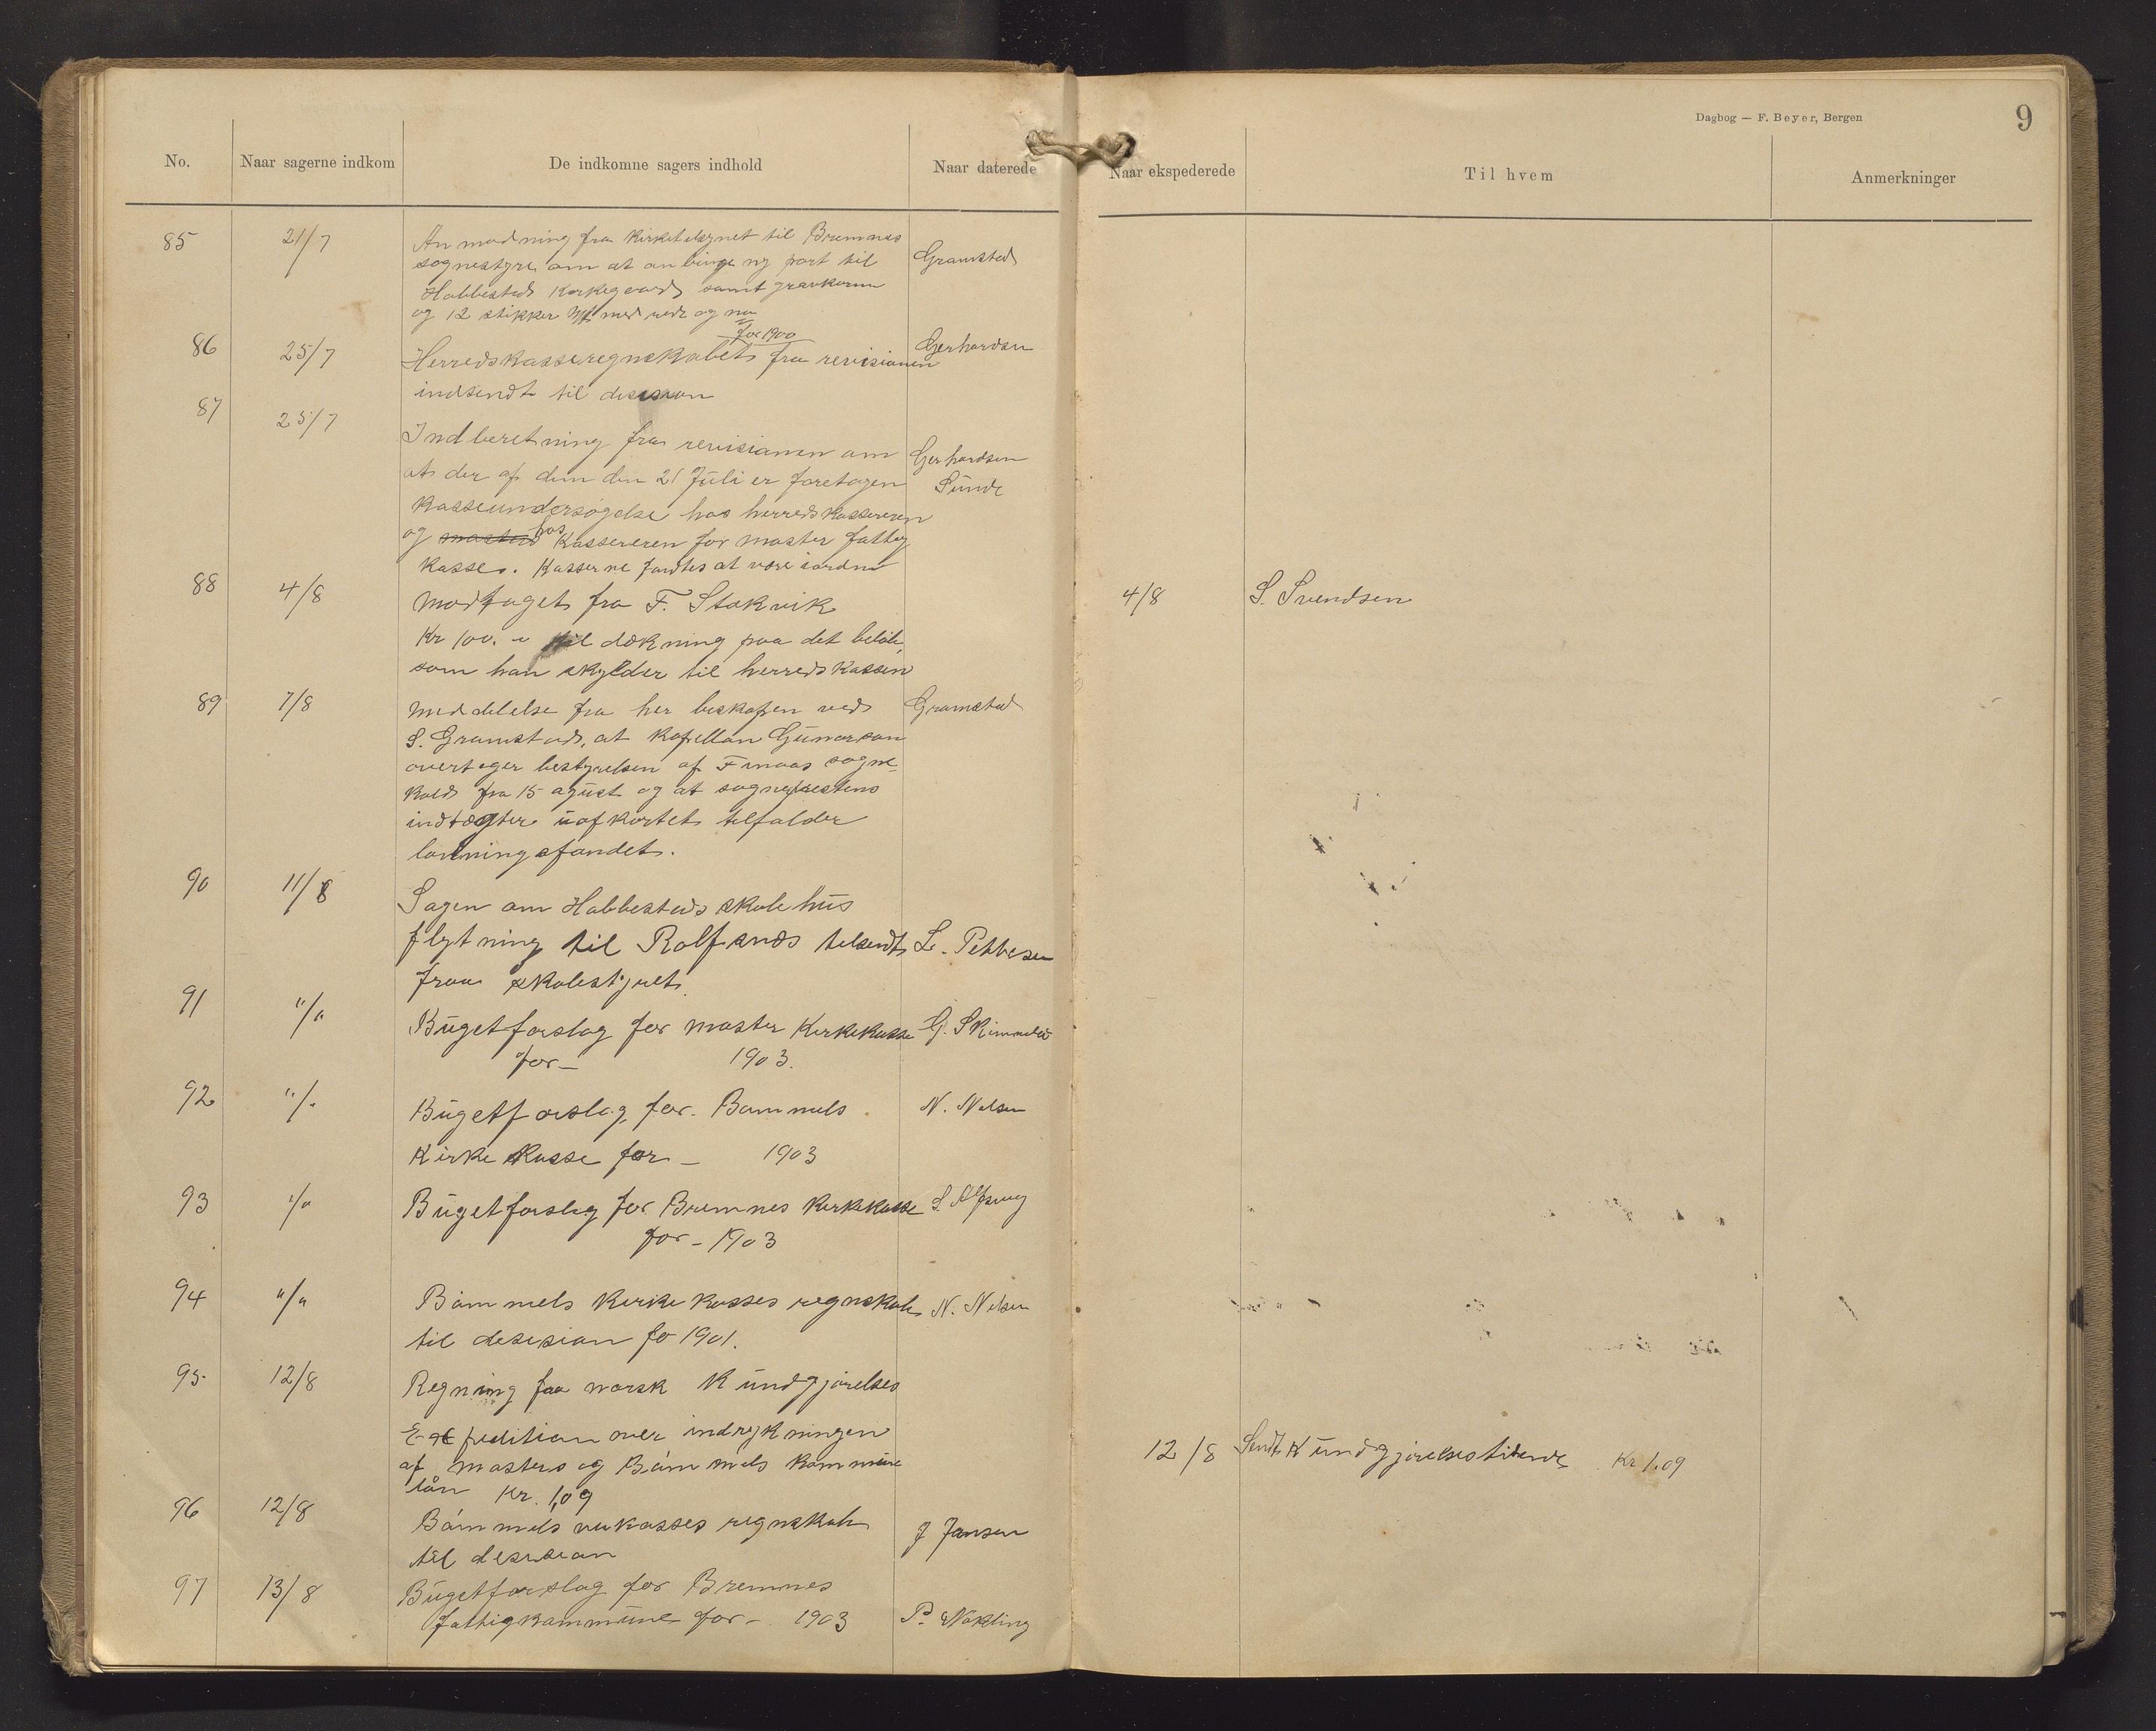 Dagbog — F. Beyer, Bergen
9
No. Naar sagerne indkom De indkomne sagers indhold Naar daterede Naar ekspederede Til hvem Anmerkninger
85 21/7 Anmodning fra Kirketilsynet til Bremnes
sognestyre om at anbinge ny port til Gramstad
Habbestad Kirkegaard samt
og 12 stikker med og
for 1900
86 25/7 Herredskasseregnskabet fra revisionen Gerhardsen
indsendt til desision
87 25/7 Indberetning fra revisionen om Gerhardsen
at der af dem den 21 Juli er foretagen Sunde
Kasseundersøgelse hos herredskassereren
og hos Kassereren for moster fattig
Kasse. Kasserne fandtes at være iorden
88 4/8 Modtaget fra F. Stokvik 4/8 S. Svendsen
Kr 100. til dækning paa det beløb,
som han skylder til herredskassen
89 7/8 Meddelelse fra her beskopen ved Gramstad
S. Gramstad, at Kapellan Gunarson
overtager bestyrelsen af Finaas sogne-
kald fra 15 agust og at sogneprestens
indtægter uafkortet tilfalder
lønningsfondet.
90 11/8 Sagen om Habbestad skolehus
flytning til Rolfsnæs tilsendt L. Pettersen
fraa skolestyret
91 "/" Bugetforslag for moster Kirkekasse G. Skimmeland
for — 1903.
92 "/" Bugetforslag for Bømmels N. Nelsen
Kirke Kasse for — 1903
93 "/" Bugetforslag for Bremnes Kirkekasse S. Alfsvaag
for — 1903
94 "/" Bømmels Kirkekasses regnskab N. Nelsen
til desesian fo 1901.
95 12/8 Regning fra norsk Kundgjørelses
Expedition over indrykningen
af mosters og Bømmels Kommune 12/8 Sendt Kundgjørelsestidende Kr 1.09
lån Kr. 1,09
96 12/8 Bømmels veikasses regnskab J Jansen
til desesian
97 13/8 Bugetforslag for Bremnes
fattigkommune for — 1903 P. Nøkling